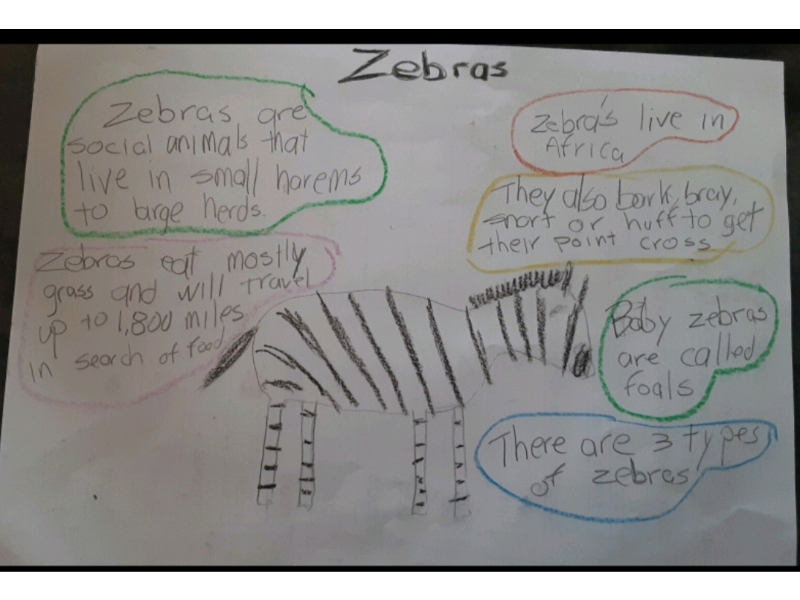 Zebras
Zebras are
social animals that
live in small harems
to large herds.
Zebra's live in
Africa
They also bark, bray,
snort or huff to get
their point cross
Zebras eat mostly
grass and will travel
up to 1,800 miles
in search of food
Baby zebras
are called
foals
There are 3 types
of zebras